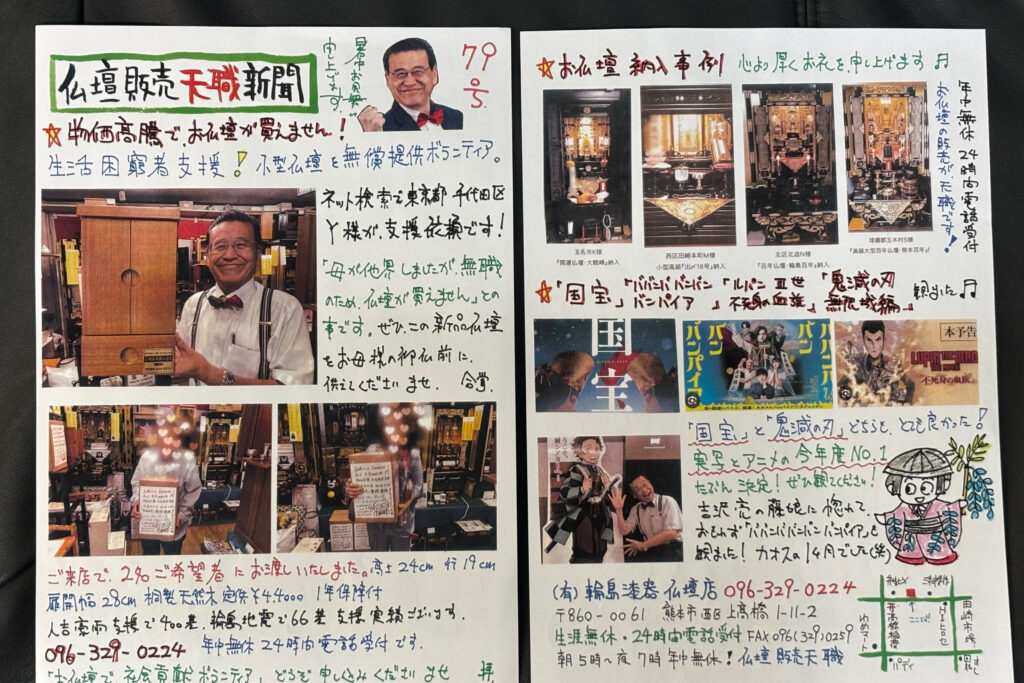 仏壇販売天職新聞
暑中お見舞い
申し上げます。
79
号
☆物価高騰で、お仏壇が買えません！
生活困窮者支援！小型仏壇を無償提供ボランティア。
ネット検索で東京都千代田区
Y様が、支援依頼です！
「母が他界しましたが、無職
のため、仏壇が買えません」との
事です。ぜひ、この新品仏壇
をお母様の御仏前に、
供えてくださいませ。合掌。
ご来店で、2名ご希望者にお渡しいたしました。高さ24cm 行19cm
扉開幅28cm 桐製天然木 定価¥44000 1年保障付
人吉豪雨支援で400基、輪島地震で66基支援実績ございます。
096-329-0224 年中無休24時間電話受付です。
「お仏壇で社会貢献ボランティア」どうぞ申し込みくださいませ
☆お仏壇納入事例 心より厚くお礼を申し上げます♬
年中無休24時間電話受付
お仏壇の販売が、天職です！
玉名市K様
『開運仏壇・大観峰』納入
西区田崎本町M様
小型高級『出〆18号』納入
北区北迫N様
『百年仏壇・輪島百年』納入
球磨郡五木村S様
『高級大型百年仏壇・熊本百年』
☆「国宝」「ババンババンバンバンパイア」「ルパン三世 不死身の血族」「鬼滅の刃 無限城編」観ました♬
国宝
ババンババンバンバンパイア
本予告
LUPIN THE IIIRD
不死身の血族
「国宝」と「鬼滅の刃」どちらも、とても良かった！
実写とアニメの今年度NO.1
たぶん決定！ぜひ観てください！
吉沢亮の藤娘に惚れて、
おもわず「ババンババンバンバンパイア」も
観ました！カオスの1ヶ月でした(笑)
(有)輪島漆器仏壇店 096-329-0224
〒860-0061 熊本市西区上高橋1-11-2
生涯無休・24時間電話受付 FAX 096(329)0259
朝5時〜夜7時 年中無休！仏壇販売天職
ここだ！
ゆめマート
田崎市場